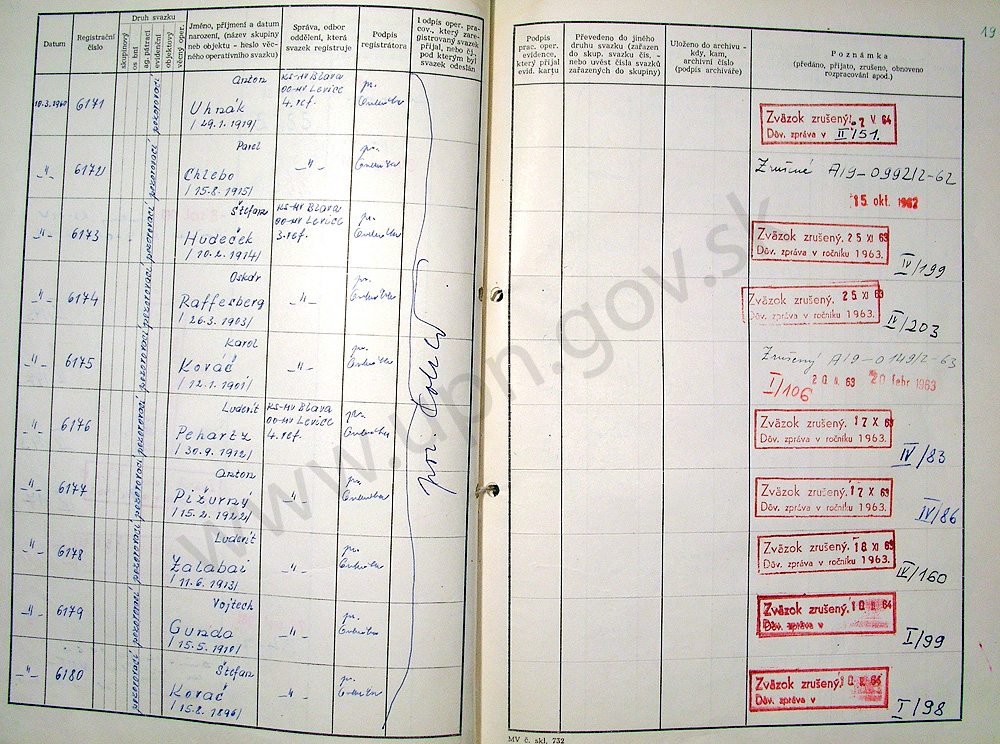 19
Datum
Registrační číslo
Druh svazku
skupinový
os bní
ag. pátrací
evidenční
objektový
věcný oper.
Jméno, příjmení a datum
narození, (název skupiny
neb objektu - heslo věc-
ného operativního svazku)
Správa, odbor
oddělení, která
svazek registruje
Podpis
registrátora
Podpis oper. pra-
cov., který zare-
gistrovaný svazek
přijal, nebo čj.
pod kterým byl
svazek odeslán
Podpis
prac. oper.
evidence,
který přijal
evid. kartu
Převedeno do jiného
druhu svazku (zařazen
do skup. svazku čís. -
nebo uvést čísla svazků
zařazených do skupiny)
Uloženo do archivu -
kdy, kam,
archivní číslo
(podpis archiváře)
Poznámka
(předáno, přijato, zrušeno, obnoveno
rozpracování apod.)
10.3.1960 6171 pozorovací
Anton
Uhnák
/29.1.1919/
KS-MV Blava
OO-MV Levice
4. ref.
pr.
Zväzok zrušený. 2 V. 64
Dôv. zpráva v II/51.
-"- 6172 pozorovací
Pavel
Chlebo
/15.8.1915/
-"-
pr.
Zrušené A/9-0992/2-62
15. okt. 1962
-"- 6173 pozorovací
Štefan
Hudeček
/10.2.1914/
KS-MV Blava
OO-MV Levice
3. ref.
pr.
Zväzok zrušený. 25 XI 63
Dôv. zpráva v ročníku 1963.
IV/199
-"- 6174 pozorovací
Oskár
Raffesberg
/26.3.1903/
-"-
pr.
Zväzok zrušený. 25 XI 63
Dôv. zpráva v ročníku 1963.
IV/203
-"- 6175 pozorovací
Karol
Kováč
/12.1.1901/
-"-
pr.
Zrušený A/9-0149/2-63
I/106 20 II. 63 20 febr 1963
-"- 6176 pozorovací
Ludevít
Pehartz
/30.9.1912/
KS-MV Blava
OO-MV Levice
4. ref.
pr.
Zväzok zrušený. 17 X 63
Dôv. zpráva v ročníku 1963.
IV/83
-"- 6177 pozorovací
Anton
Pižurný
/15.2.1922/
-"-
pr.
Zväzok zrušený. 17 X 63
Dôv. zpráva v ročníku 1963.
IV/86
-"- 6178 pozorovací
Ludevít
Zalabai
/11.6.1913/
-"-
pr.
Zväzok zrušený. 18 XI 63
Dôv. zpráva v ročníku 1963.
IV/160
-"- 6179 pozorovací
Vojtech
Gunda
/15.5.1910/
-"-
pr.
Zväzok zrušený. 10 II. 64
Dôv. zpráva v
I/99
-"- 6180 pozorovací
Štefan
Kováč
/15.8.1896/
-"-
pr.
Zväzok zrušený. 10 II. 64
Dôv. zpráva v
I/98
MV č. skl. 732
www.upn.gov.sk